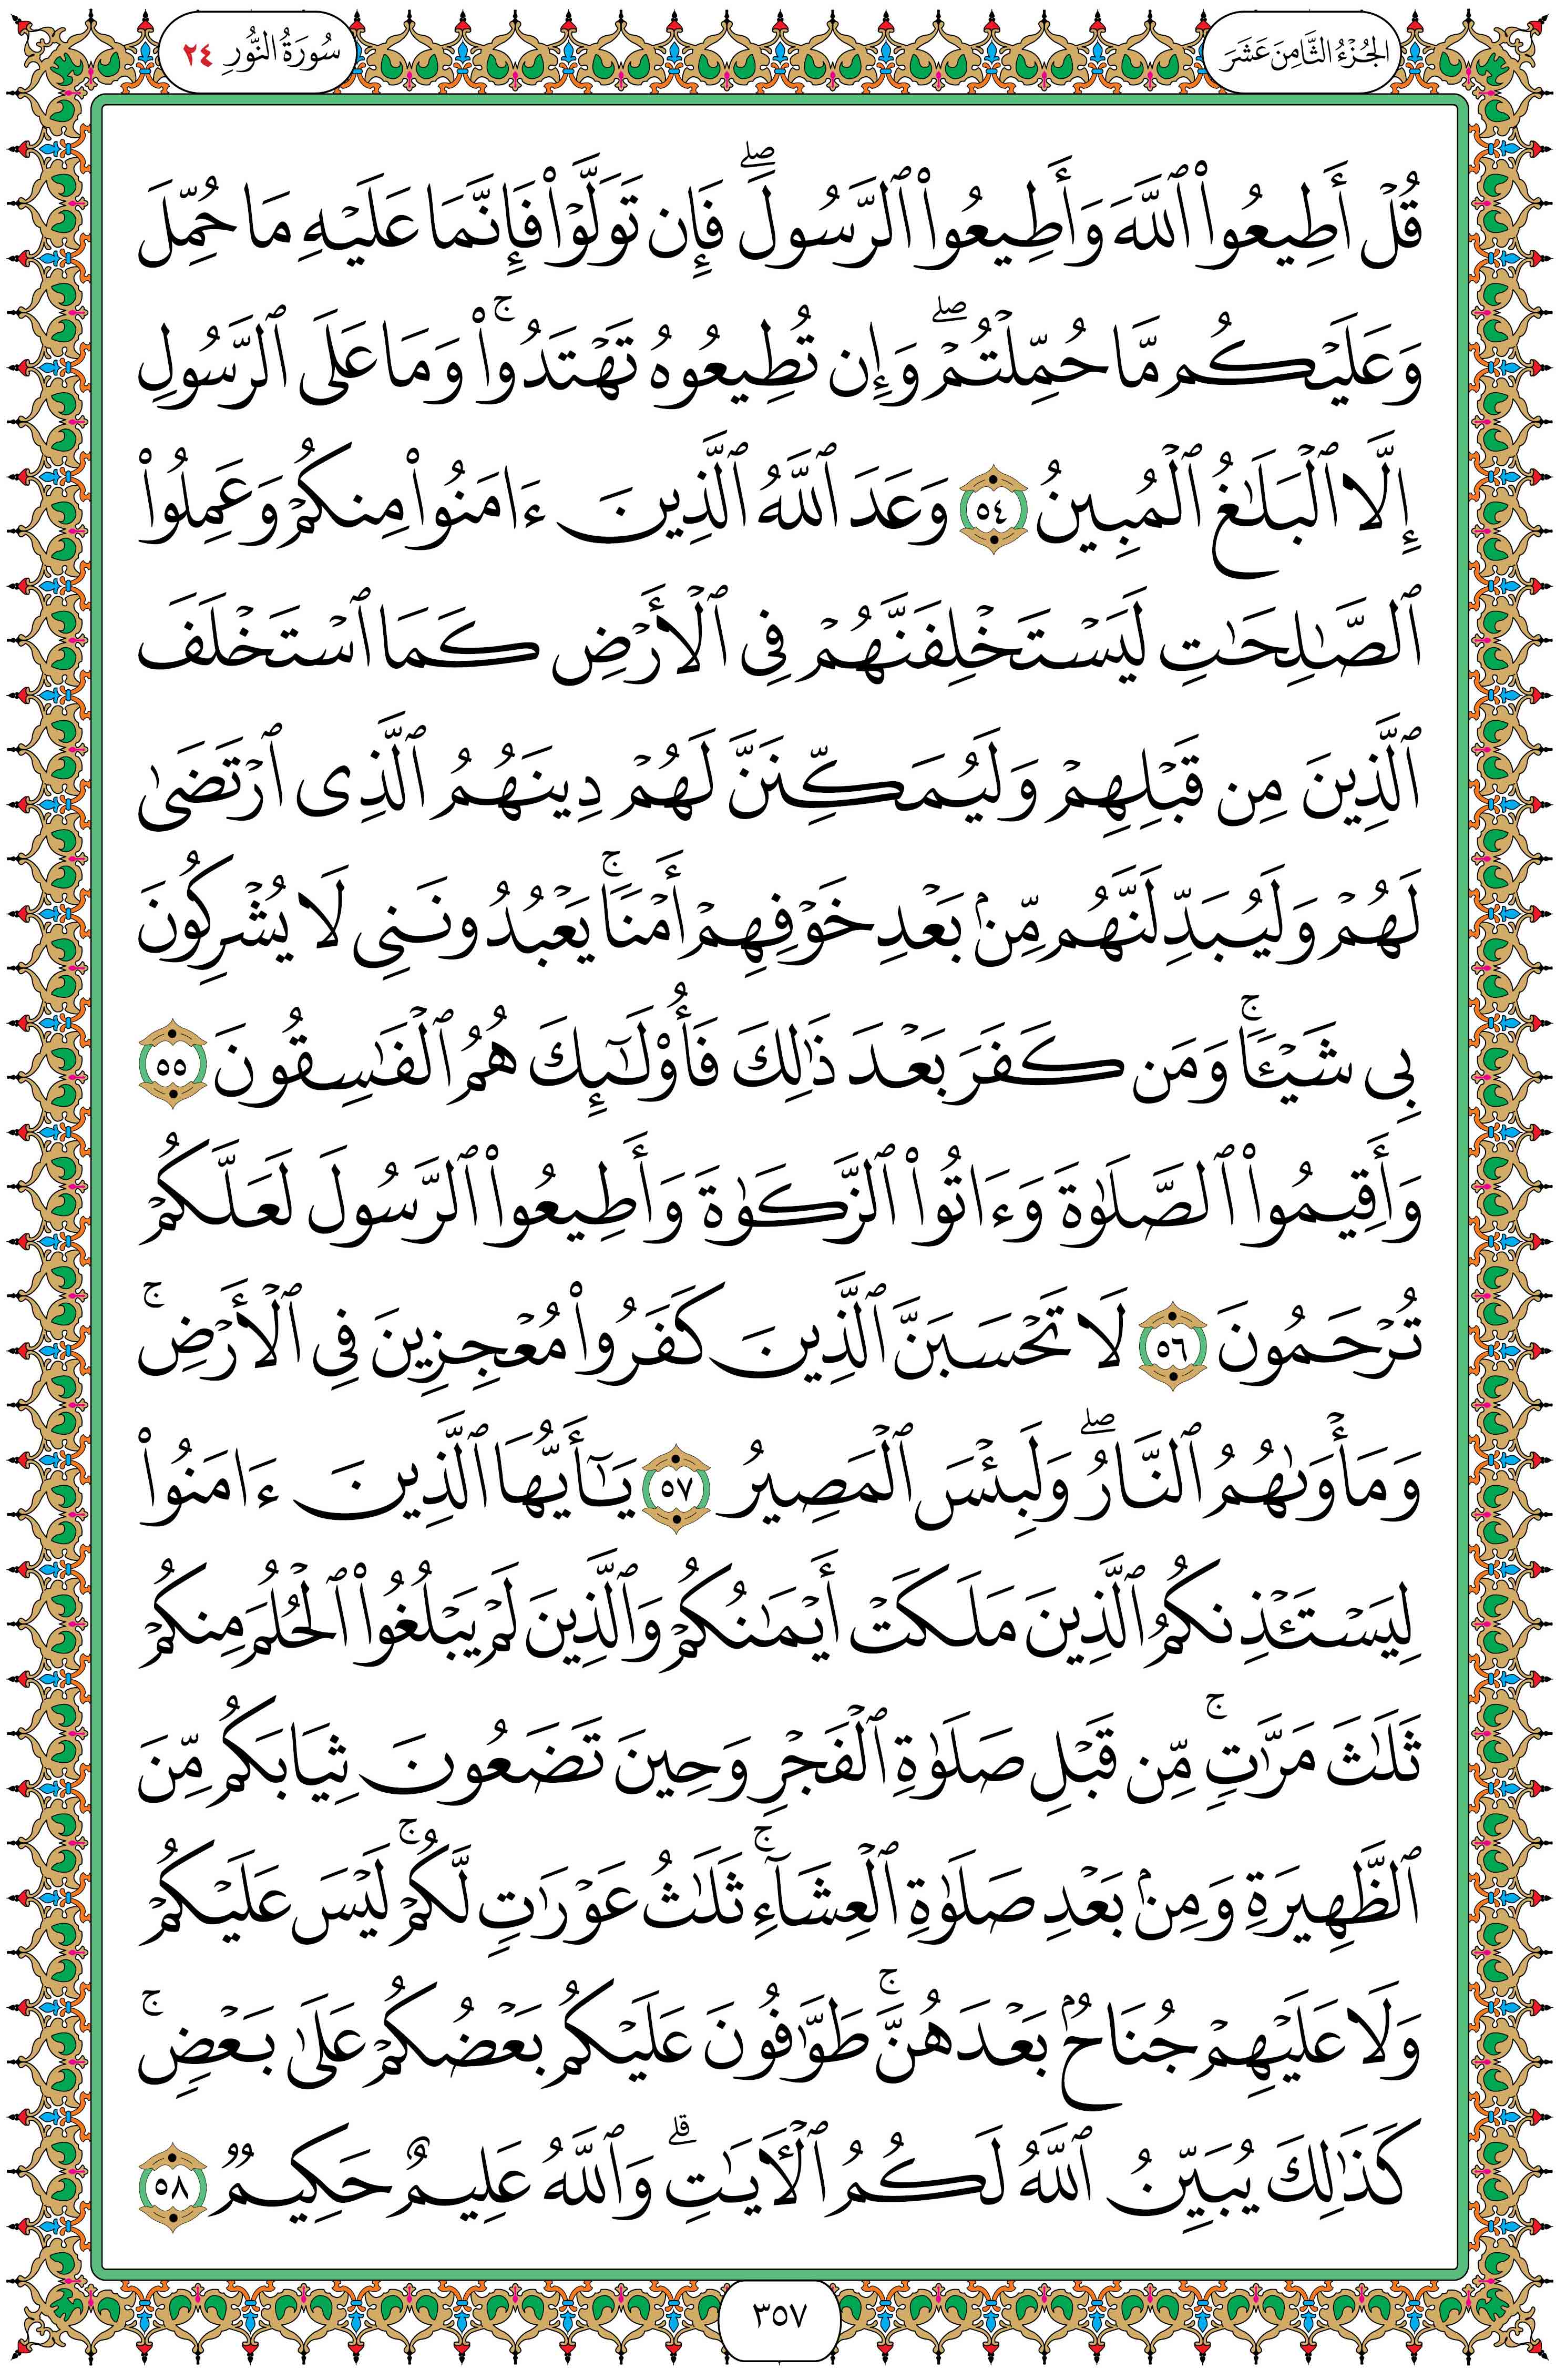 الجُزْءُ الثَّامِنَ عَشَرَ
سُورَةُ النُّورِ ٢٤
قُلْ أَطِيعُوا۟ ٱللَّهَ وَأَطِيعُوا۟ ٱلرَّسُولَ ۖ فَإِن تَوَلَّوْا۟ فَإِنَّمَا عَلَيْهِ مَا حُمِّلَ
وَعَلَيْكُم مَّا حُمِّلْتُمْ ۖ وَإِن تُطِيعُوهُ تَهْتَدُوا۟ ۚ وَمَا عَلَى ٱلرَّسُولِ
إِلَّا ٱلْبَلَٰغُ ٱلْمُبِينُ ٥٤ وَعَدَ ٱللَّهُ ٱلَّذِينَ ءَامَنُوا۟ مِنكُمْ وَعَمِلُوا۟
ٱلصَّٰلِحَٰتِ لَيَسْتَخْلِفَنَّهُمْ فِى ٱلْأَرْضِ كَمَا ٱسْتَخْلَفَ
ٱلَّذِينَ مِن قَبْلِهِمْ وَلَيُمَكِّنَنَّ لَهُمْ دِينَهُمُ ٱلَّذِى ٱرْتَضَىٰ
لَهُمْ وَلَيُبَدِّلَنَّهُم مِّنۢ بَعْدِ خَوْفِهِمْ أَمْنًا ۚ يَعْبُدُونَنِى لَا يُشْرِكُونَ
بِى شَيْـًٔا ۚ وَمَن كَفَرَ بَعْدَ ذَٰلِكَ فَأُو۟لَٰٓئِكَ هُمُ ٱلْفَٰسِقُونَ ٥٥
وَأَقِيمُوا۟ ٱلصَّلَوٰةَ وَءَاتُوا۟ ٱلزَّكَوٰةَ وَأَطِيعُوا۟ ٱلرَّسُولَ لَعَلَّكُمْ
تُرْحَمُونَ ٥٦ لَا تَحْسَبَنَّ ٱلَّذِينَ كَفَرُوا۟ مُعْجِزِينَ فِى ٱلْأَرْضِ ۚ
وَمَأْوَىٰهُمُ ٱلنَّارُ ۖ وَلَبِئْسَ ٱلْمَصِيرُ ٥٧ يَٰٓأَيُّهَا ٱلَّذِينَ ءَامَنُوا۟
لِيَسْتَـْٔذِنكُمُ ٱلَّذِينَ مَلَكَتْ أَيْمَٰنُكُمْ وَٱلَّذِينَ لَمْ يَبْلُغُوا۟ ٱلْحُلُمَ مِنكُمْ
ثَلَٰثَ مَرَّٰتٍ ۚ مِّن قَبْلِ صَلَوٰةِ ٱلْفَجْرِ وَحِينَ تَضَعُونَ ثِيَابَكُم مِّنَ
ٱلظَّهِيرَةِ وَمِنۢ بَعْدِ صَلَوٰةِ ٱلْعِشَآءِ ۚ ثَلَٰثُ عَوْرَٰتٍ لَّكُمْ ۚ لَيْسَ عَلَيْكُمْ
وَلَا عَلَيْهِمْ جُنَاحٌۢ بَعْدَهُنَّ ۚ طَوَّٰفُونَ عَلَيْكُم بَعْضُكُمْ عَلَىٰ بَعْضٍ ۚ
كَذَٰلِكَ يُبَيِّنُ ٱللَّهُ لَكُمُ ٱلْـَٔايَٰتِ ۗ وَٱللَّهُ عَلِيمٌ حَكِيمٌ ٥٨
٣٥٧